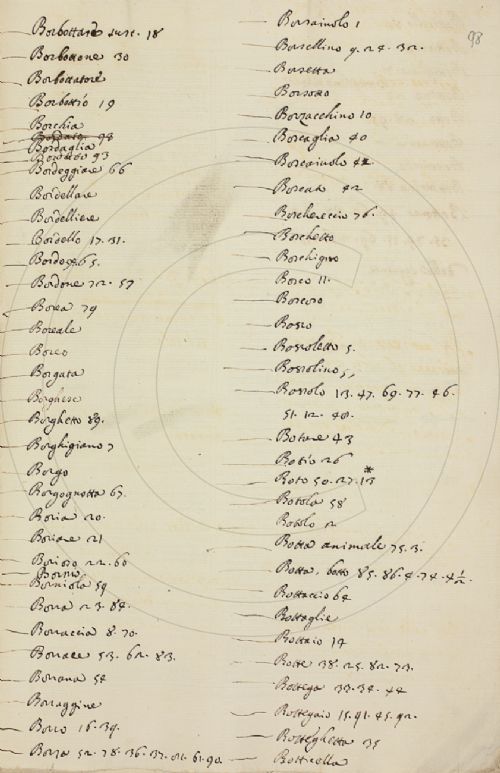 98
Borbottare sust. 18
Borbottone 30
Borbottatore
Borbottio 19
Borchia
Bordato 98
Bordaglia
Bordato 93
Bordeggiare 66
Bordellare
Bordelliere
Bordello 17. 31.
Bordo 65.
Bordone 72. 57
Borea 79
Boreale
Boreo
Borgata
Borghese
Borghetto 89.
Borghigiano 7
Borgo
Borgognotta 67.
Boria 20.
Boriare 21
Borioso 22. 60
Borniola 59
Borra 23. 84.
Borraccia 8. 70.
Borrace 53. 62. 83.
Borrana 54
Borraggine
Borro 16. 39.
Borsa 52. 78. 36. 37. 61. 90.
Borsaiuolo 1
Borsellino 9. 24. 32.
Borsetta
Borsotto
Borzacchino 10
Boscaglia 40
Boscaiuolo
Boscata 42
Boschereccio 76.
Boschetto
Boschigno
Bosco 11.
Boscoso
Bosso
Bossoletto 5.
Bossolino
Bossolo 13. 47. 69. 77. 46.
51. 12. 48.
Botare 43
Botio 26
Boto 50. 27. 13
Botola 58
Botolo 2
Botta animale 75. 3.
Botta, botto 85. 86. 4. 74. 4½
Bottaccio 64
Bottaglie
Bottaio 14
Botte 38. 25. 82. 73.
Bottega 33. 34. 44
Bottegaio 15. 91. 45. 92.
Botteghetta 35
Botticella